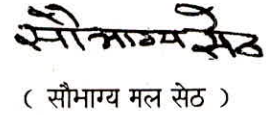 सौभाग्य सेठ
( सौभाग्य मल सेठ )